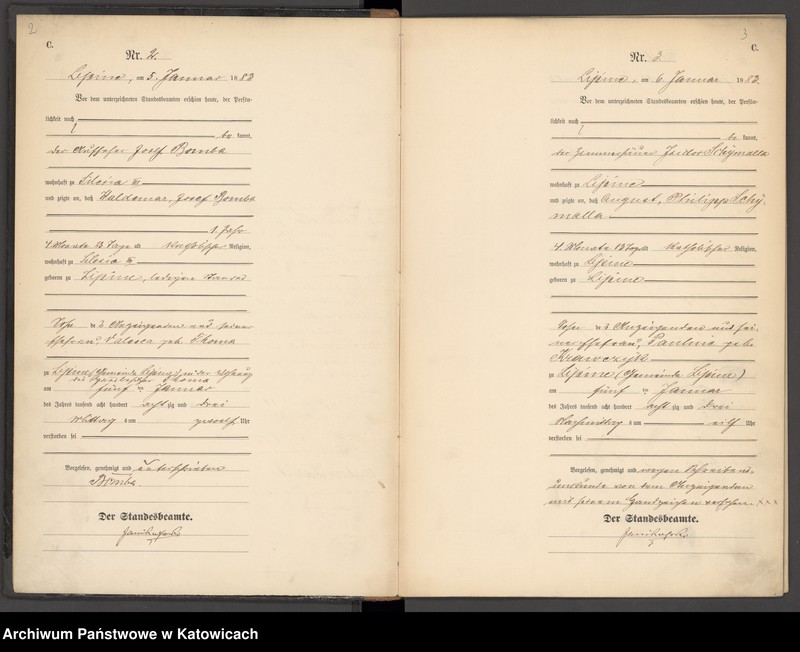 2
C.
Nr. 2.
Lipine, am 5. Januar 1883
Vor dem unterzeichneten Standesbeamten erschien heute, der Persön-
lichkeit nach
be kannt,
der Aufseher Josef Bomba
wohnhaft zu Silesia III
und zeigte an, daß Waldemar, Josef Bomba
1 Jahr
4 Monate 13 Tage alt katholischer Religion,
wohnhaft zu Silesia III
geboren zu Lipine,
Sohn des Anzeigenden und seiner
Ehefrau, Valeska geb. Thoma
zu Lipine (Gemeinde Lipine), in der Wohnung
Thoma
am fünf ten Januar
des Jahres tausend acht hundert acht zig und drei
Mittag s um zwölf Uhr
verstorben sei
Vorgelesen, genehmigt und unterschrieben
Bomba
Der Standesbeamte.
3
C.
Nr. 3.
Lipine, am 6. Januar 1883.
Vor dem unterzeichneten Standesbeamten erschien heute, der Persön-
lichkeit nach
be kannt,
der Zimmerhäuer Isidor Schymalla
wohnhaft zu Lipine
und zeigte an, daß August, Philipp Schy-
malla
4 Monate 13 Tage alt katholischer Religion,
wohnhaft zu Lipine
geboren zu Lipine
Sohn des Anzeigenden und sei-
ner Ehefrau, Paulina geb.
Krawczyk
zu Lipine (Gemeinde Lipine)
am fünf ten Januar
des Jahres tausend acht hundert acht zig und drei
Nachmittag s um elf Uhr
verstorben sei
Vorgelesen, genehmigt und wegen Schreibens-
unkunde von dem Anzeigenden
mit seinem Handzeichen versehen. xxx
Der Standesbeamte.
Archiwum Państwowe w Katowicach